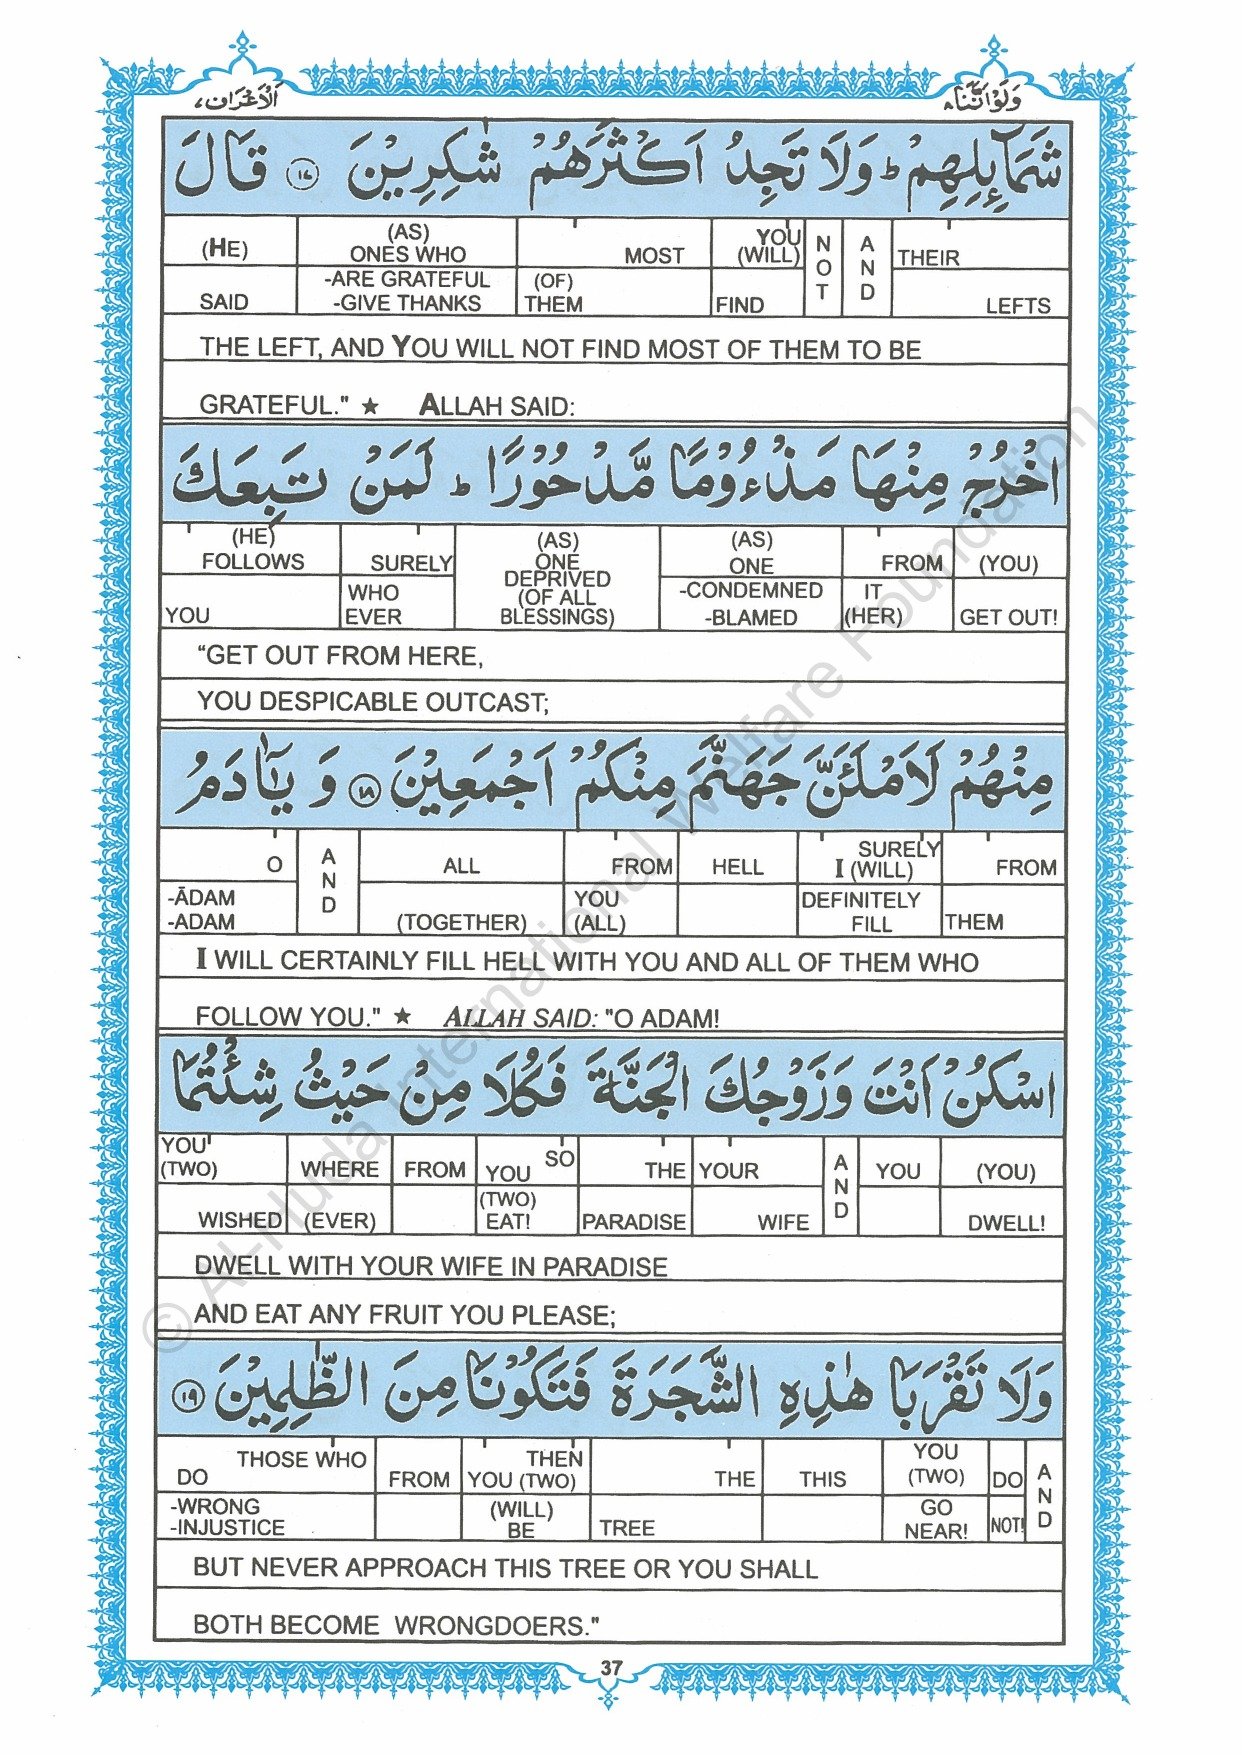 اَلْاَعْرَاف٧ وَلَوْ اَنَّنَا٨
شَمَآئِلِهِمْ ؕ وَلَا تَجِدُ اَكْثَرَهُمْ شٰكِرِيْنَ ۱۷ قَالَ
(HE) (AS) ONES WHO MOST YOU (WILL) NOT AND THEIR
SAID -ARE GRATEFUL -GIVE THANKS (OF) THEM FIND LEFTS
THE LEFT, AND YOU WILL NOT FIND MOST OF THEM TO BE
GRATEFUL." ★ ALLAH SAID:
اخْرُجْ مِنْهَا مَذْءُوْمًا مَّدْحُوْرًا ؕ لَمَنْ تَبِعَكَ
(HE) FOLLOWS SURELY (AS) ONE DEPRIVED (OF ALL BLESSINGS) (AS) ONE FROM (YOU)
YOU WHO EVER -CONDEMNED -BLAMED IT (HER) GET OUT!
“GET OUT FROM HERE,
YOU DESPICABLE OUTCAST;
مِنْهُمْ لَاَمْلَـَٔنَّ جَهَنَّمَ مِنْكُمْ اَجْمَعِيْنَ ۱۸ وَ يٰٓاٰدَمُ
O AND ALL FROM HELL SURELY I (WILL) FROM
-ĀDAM -ADAM (TOGETHER) YOU (ALL) DEFINITELY FILL THEM
I WILL CERTAINLY FILL HELL WITH YOU AND ALL OF THEM WHO
FOLLOW YOU." ★ ALLAH SAID: "O ADAM!
اسْكُنْ اَنْتَ وَزَوْجُكَ الْجَنَّةَ فَكُلَا مِنْ حَيْثُ شِئْتُمَا
YOU (TWO) WHERE FROM YOU SO THE YOUR AND YOU (YOU)
WISHED (EVER) (TWO) EAT! PARADISE WIFE DWELL!
DWELL WITH YOUR WIFE IN PARADISE
AND EAT ANY FRUIT YOU PLEASE;
وَلَا تَقْرَبَا هٰذِهِ الشَّجَرَةَ فَتَكُوْنَا مِنَ الظّٰلِمِيْنَ ۱۹
THOSE WHO DO FROM THEN YOU (TWO) THE THIS YOU (TWO) DO AND
-WRONG -INJUSTICE (WILL) BE TREE GO NEAR! NOT!
BUT NEVER APPROACH THIS TREE OR YOU SHALL
BOTH BECOME WRONGDOERS."
37
© Al-Huda International Welfare Foundation